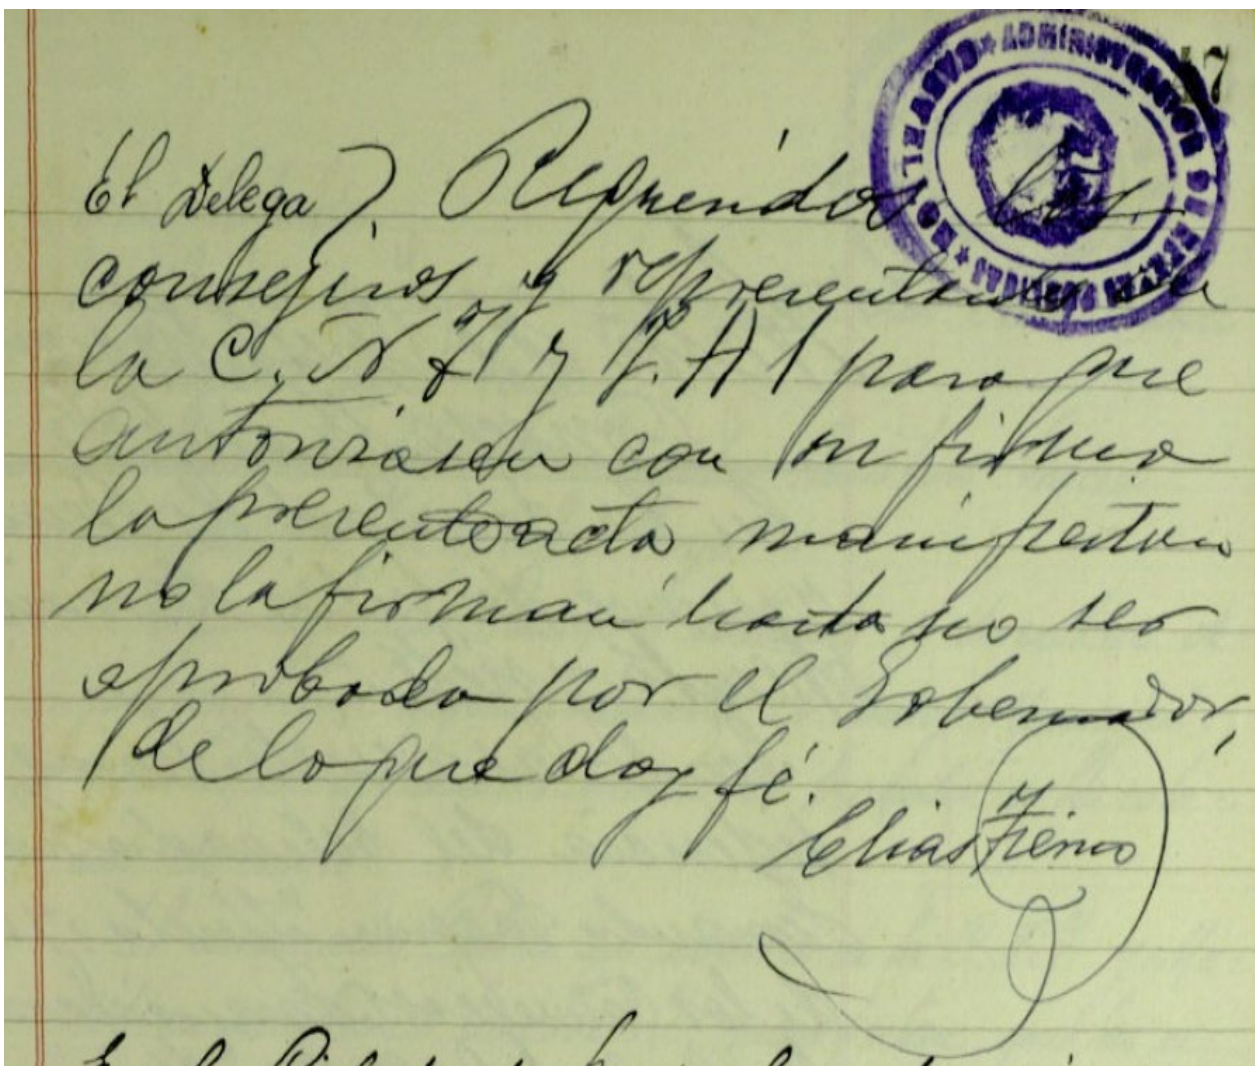 47
ADMINISTRACIÓN DE
El Delega). Requeridos los
consejeros y representantes de
la C. N T y F. A I para que
autoricen con su firma
la presente acta, manifestan
no la firman hasta no ser
aprobada por el Gobernador,
de lo que doy fé.
Elias